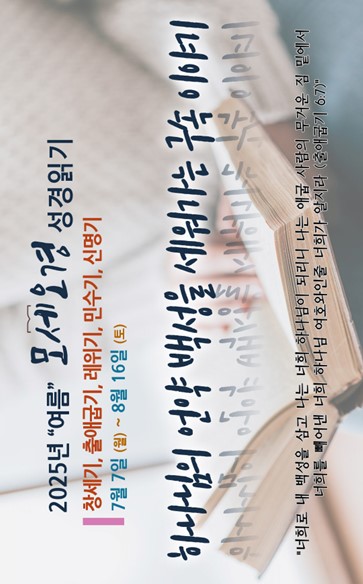 2025년 “여름” 모세오경 성경읽기
창세기, 출애굽기, 레위기, 민수기, 신명기
7월 7일 (월) ~ 8월 16일 (토)
하나님의 언약 백성을 세워가는 구속 이야기
하나님의 언약 백성을 세워가는 구속 이야기
“너희로 내 백성을 삼고 나는 너희 하나님이 되리니 나는 애굽 사람의 무거운 짐 밑에서
너희를 빼어낸 너희 하나님 여호와인줄 너희가 알지라 (출애굽기 6:7)”